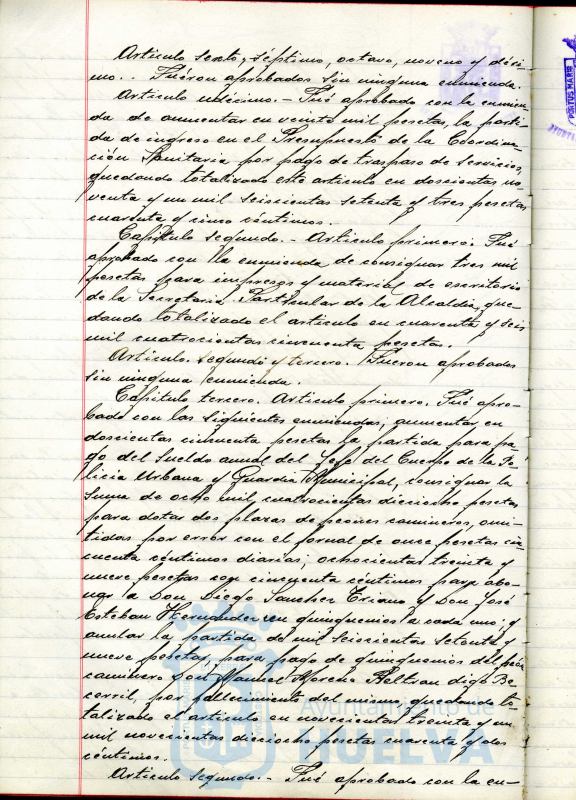 Artículo sexto, séptimo, octavo, noveno y déci-
mo. - Fueron aprobados sin ninguna enmienda.
Artículo undécimo. - Fué aprobado con la enmien-
da de aumentar en veinte mil pesetas, la parti-
da de ingreso en el Presupuesto de la Coordina-
ción Sanitaria por pago de traspaso de servicios,
quedando totalizado este artículo en doscientas no-
venta y un mil seiscientas setenta y tres pesetas
cuarenta y cinco céntimos.
Capítulo segundo. - Artículo primero. Fué
aprobado con la enmienda de consignar tres mil
pesetas para impresos y material de escritorio
de la Secretaría Particular de la Alcaldía, que-
dando totalizado el artículo en cuarenta y seis
mil cuatrocientas cincuenta pesetas.
Artículo segundo y tercero. Fueron aprobados
sin ninguna enmienda.
Capítulo tercero. Artículo primero. Fué apro-
bado con las siguientes enmiendas, aumentar en
doscientas cincuenta pesetas la partida para pa-
go del sueldo anual del Jefe del Cuerpo de la Po-
licía Urbana y Guardia Municipal, consignar la
suma de ocho mil cuatrocientas dieciocho pesetas
para dotar dos plazas de peones camineros, omi-
tidas por error con el jornal de once pesetas cin-
cuenta céntimos diarias, ochocientas treinta y
nueve pesetas con cincuenta céntimos para abo-
nar a Don Diego Sanchez Triano y Don José
Esteban Hernandez en quinquenios a cada uno; y
anular la partida de mil seiscientas setenta y
nueve pesetas, para pago de quinquenios del peón
caminero Don Manuel Moreno Beltran digo Be-
cerril, por fallecimiento del mismo, quedando to-
talizado el artículo en novecientas treinta y un
mil novecientas dieciocho pesetas cuarenta y dos
céntimos.
Artículo segundo. - Fué aprobado con la en-
Ayuntamiento de
HUELVA
PORTUS MARIS